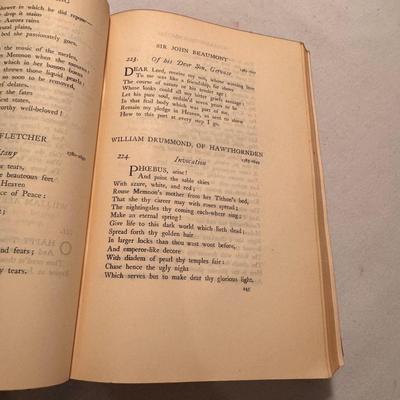 hower in which he did repose—
drop it stains
Aurora rains
rural plains,
bed she passionately
Memnon when she mourns:
from her bosom burns
throws those liquid pearls,
so soon to be removed,
of defates.
by the fates
estates.
worthy well-beloved!
FLETCHER
1580-1625
tears,
beauteous feet
Heaven
of Peace:
and fears;
my tears.
SIR JOHN BEAUMONT
223. Of his Dear Son, Gervase
DEAR Lord, receive my son, whose winning love
To me was like a friendship, far above
The course of nature or his tender age;
Whose looks could all my bitter griefs assuage:
Let his pure soul, ordain'd seven years to be
In that frail body which was part of me,
Remain my pledge in Heaven, as sent to show
How to this port at every step I go.
WILLIAM DRUMMOND, OF HAWTHORNDEN
224. Invocation 1585-1649
PHŒBUS, arise!
And paint the sable skies
With azure, white, and red;
Rouse Memnon's mother from her Tithon's bed,
That she thy career may with roses spread;
The nightingales thy coming each-where sing;
Make an eternal spring!
Give life to this dark world which lieth dead;
Spread forth thy golden hair
In larger locks than thou wast wont before,
And emperor-like decore
With diadem of pearl thy temples fair:
Chase hence the ugly night
Which serves but to make dear thy glorious light.
245